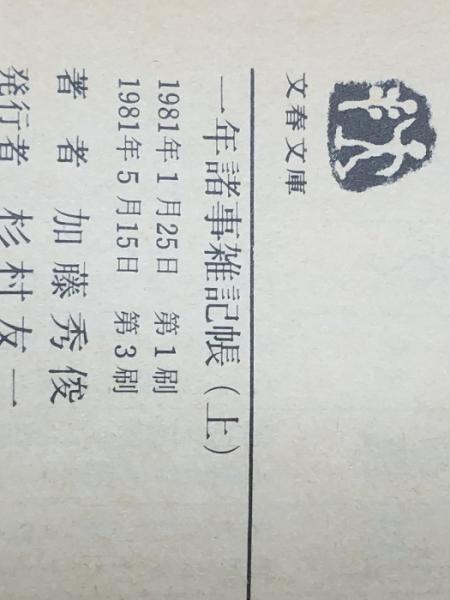 文春文庫
一年諸事雑記帳(上)
1981年1月25日 第1刷
1981年5月15日 第3刷
著者 加藤秀俊
発行者 杉村友一